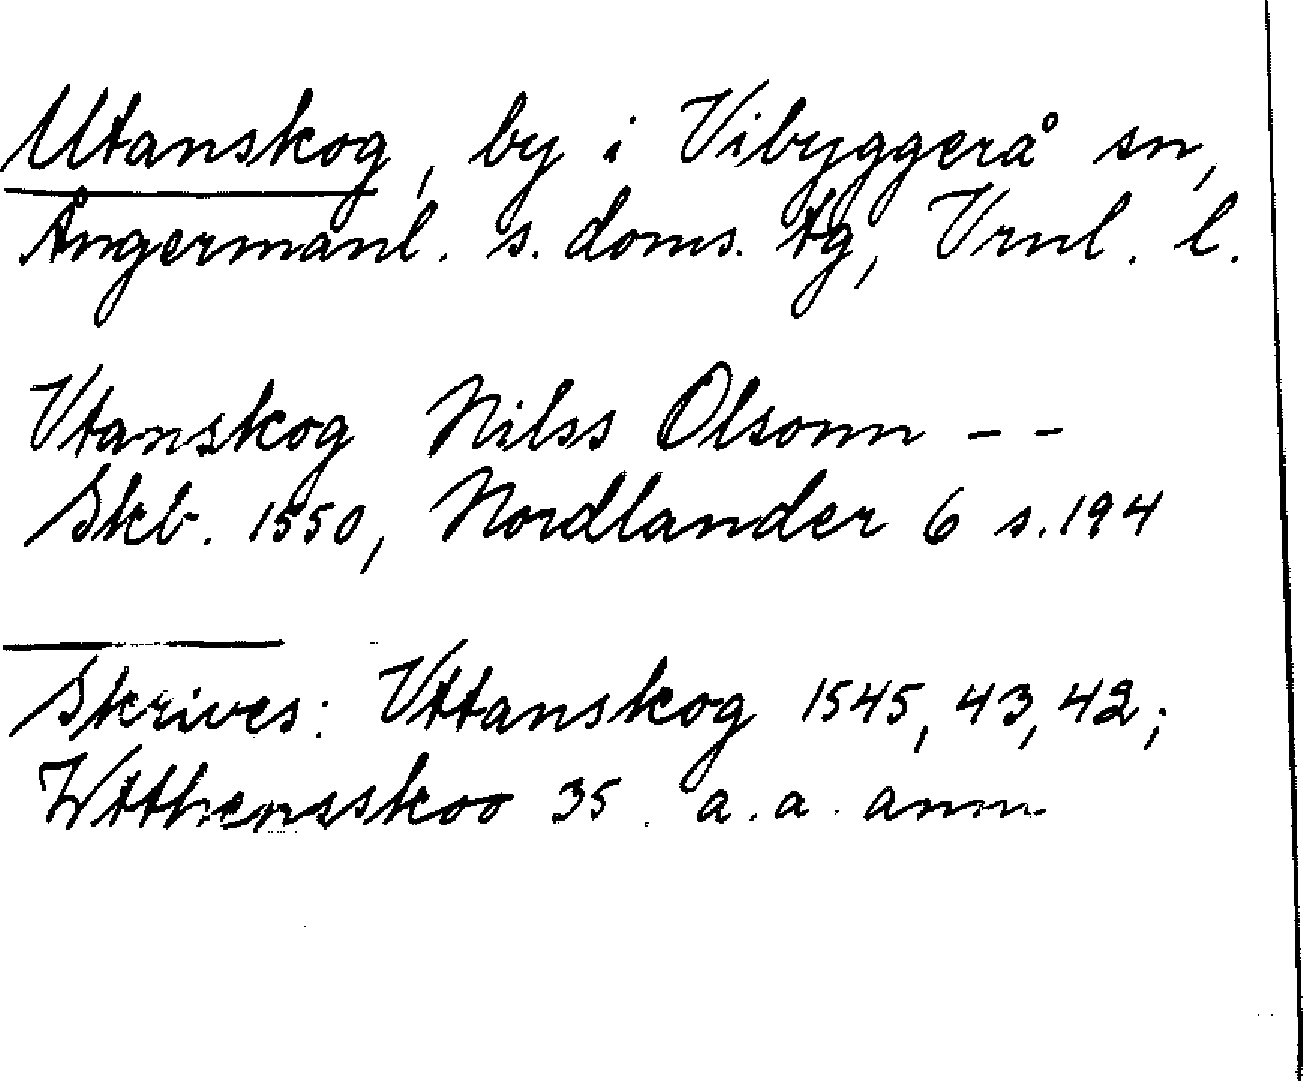 Utanskog, by i Vibyggerå sn,
Ångermanl. s. doms. tg, Vrnl. l.
Vtanskog Nilss Olsonn - -
Skb. 1550, Nordlander 6 s. 194
Skrives: Vttanskog 1545, 43, 42;
Wtthensskoo 35. a. a. anm.